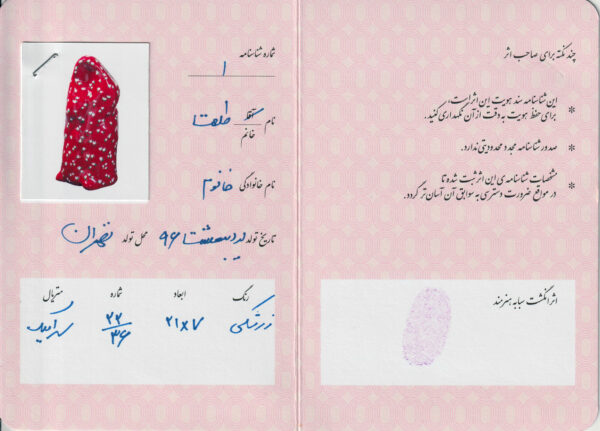 چند نکته برای صاحب اثر
* این شناسنامه سند هویت این اثر است،
برای حفظ هویت به دقت از آن نگهداری کنید.
* صدور شناسنامه مجدد محدودیتی ندارد.
* مشخصات شناسنامه‌ی این اثر ثبت شده تا
در مواقع ضرورت دسترسی به سوابق آن آسان‌تر گردد.
اثر انگشت سبابه هنرمند
شماره شناسنامه
۱
نام
خانم
نام خانوادگی خانوم
تاریخ تولد اردیبهشت ۹۶ محل تولد تهران
رنگ ابعاد شماره متریال
زرشکی ۲۱x۷ ۲۲/۳۶ سرامیک